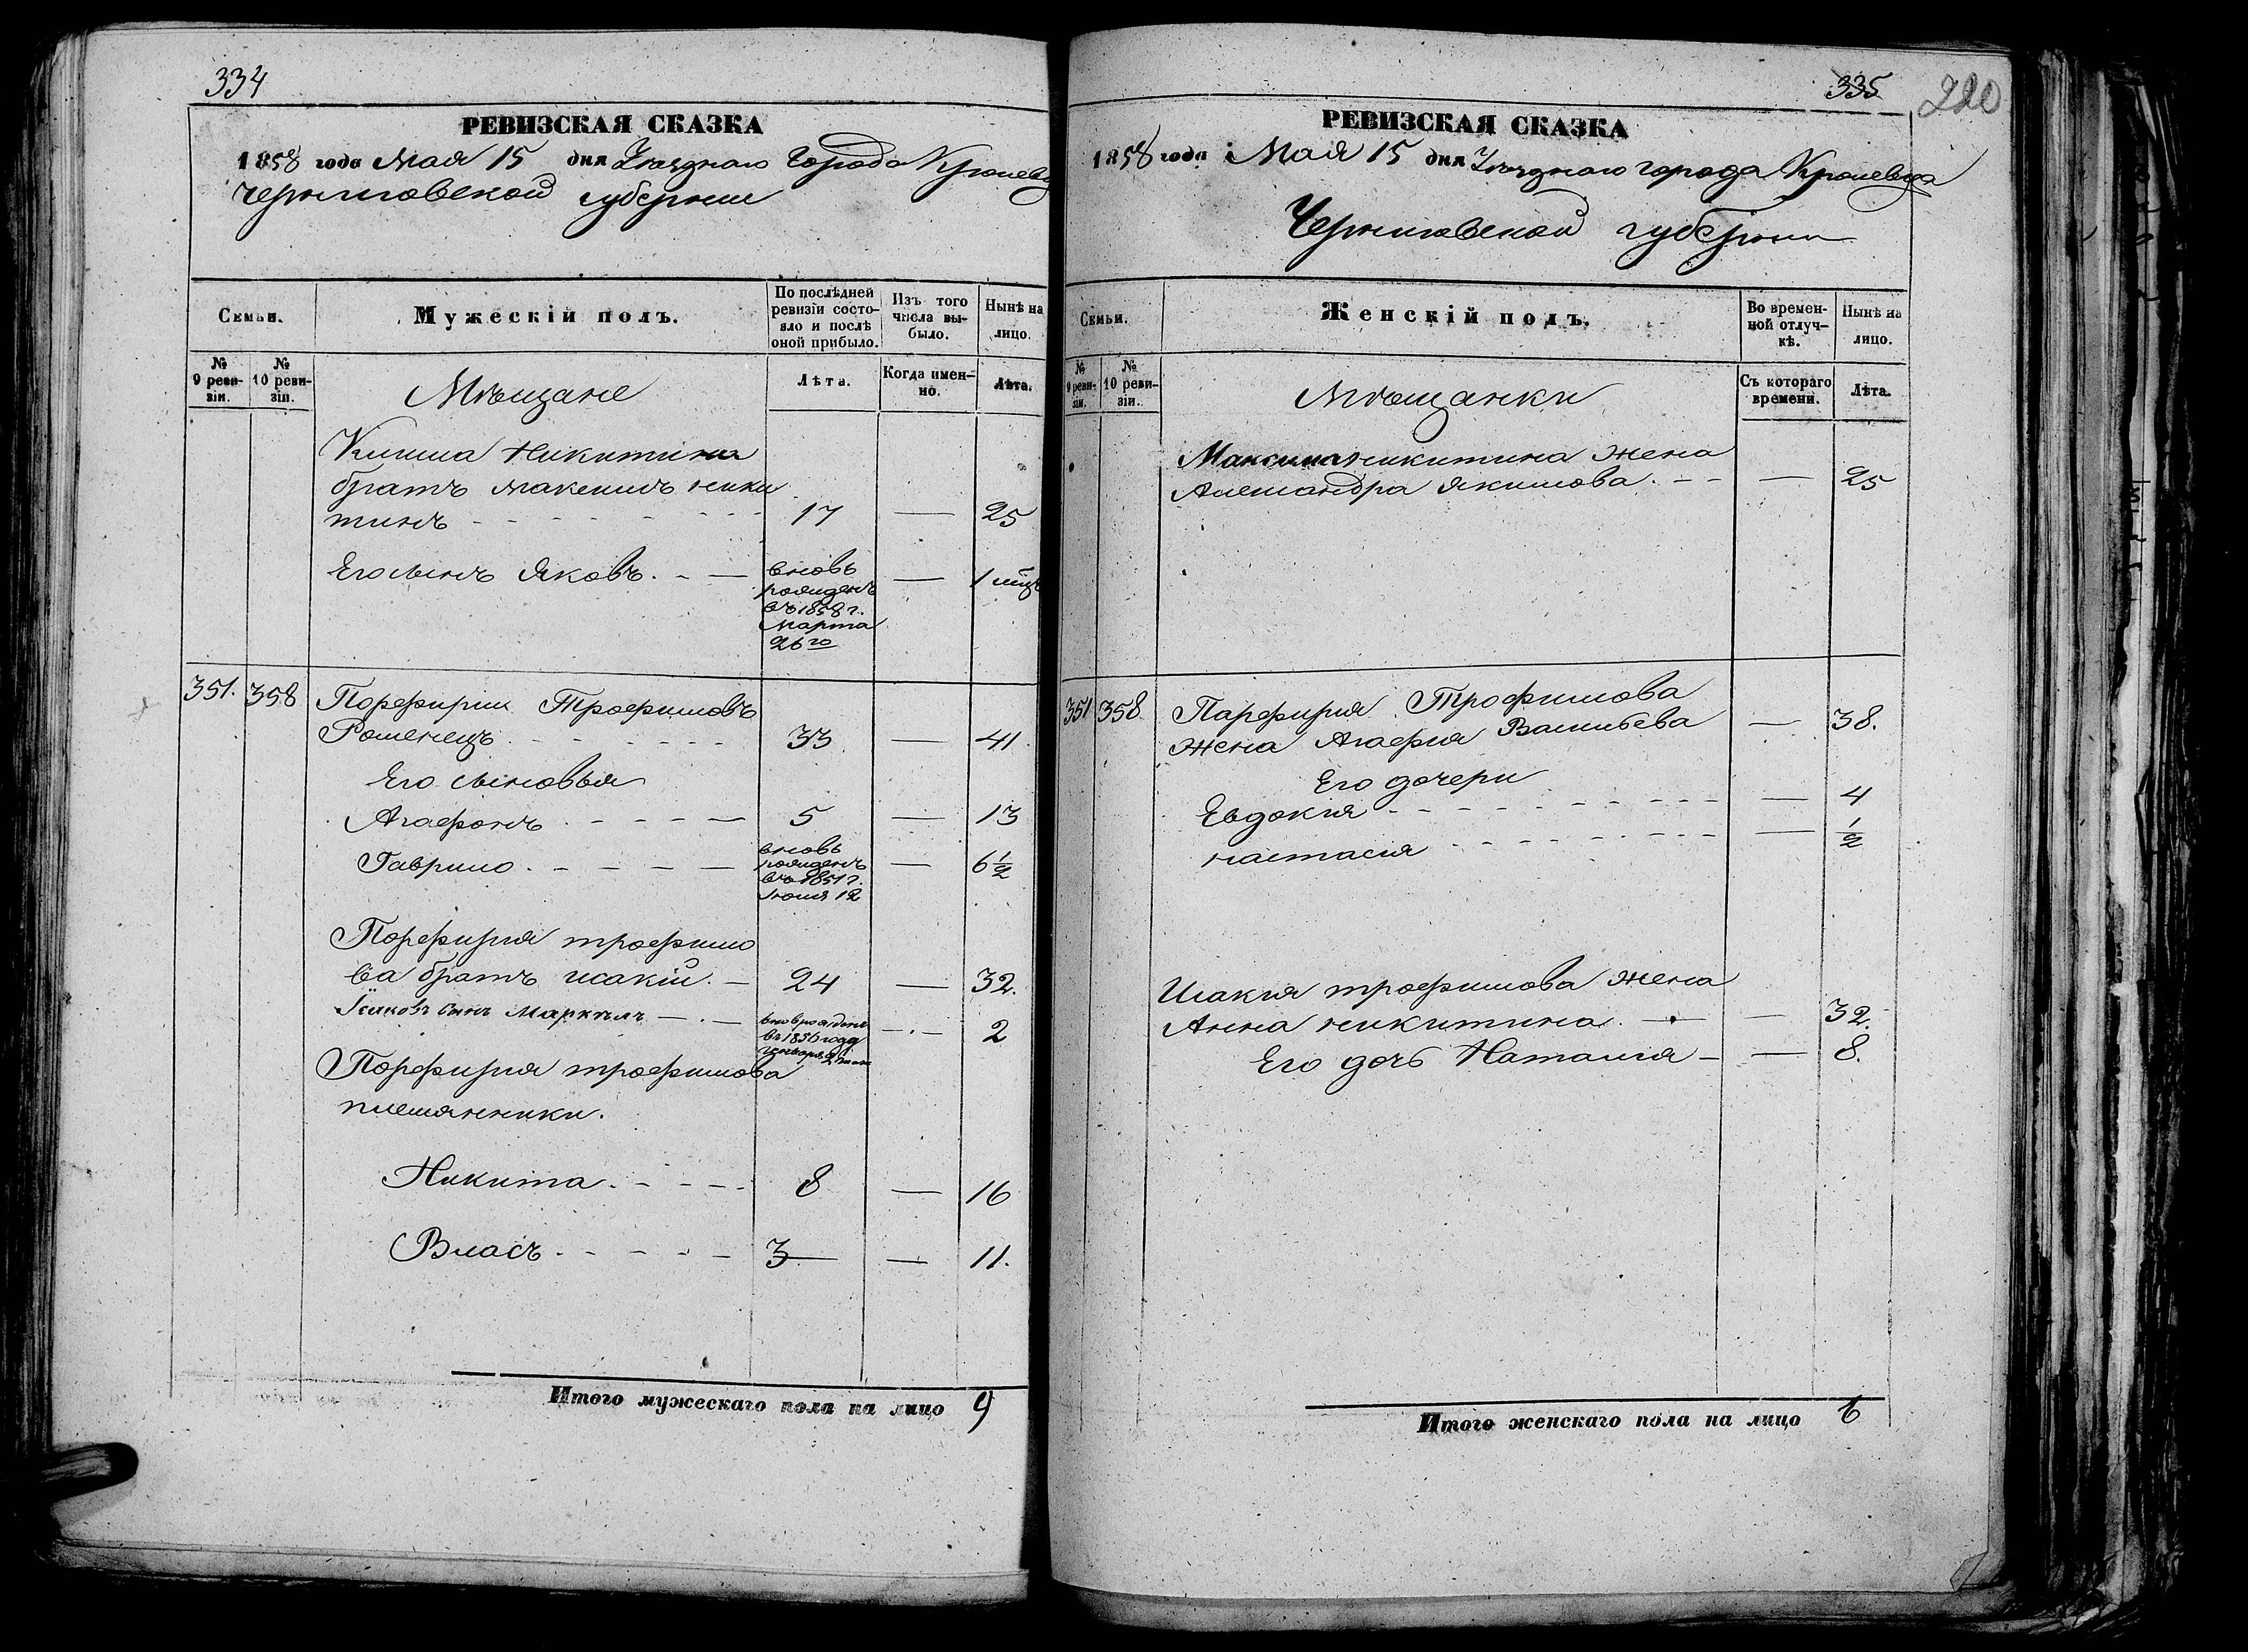 334
РЕВИЗСКАЯ СКАЗКА
1858 года Мая 15 дня Уѣзднаго города Кролевца
Черниговской губернiи
Семьи.
Мужескій полъ.
По послѣдней ревизіи состояло и послѣ оной прибыло.
Изъ того числа выбыло.
Нынѣ на лицо.
№ 9 ревизіи.
№ 10 ревизіи.
Мѣщане
Лѣта.
Когда именно.
Лѣта.
Никитина
братъ Максимъ Ники
тинъ 17 — 25
Его сынъ Яковъ. — вновь — 1 мцъ
рожденъ
въ 1858 г.
Марта
26го
351. 358 Порфирии Трофимовъ
Роменецъ 33 — 41.
Его сыновья
Агафонъ 5 — 13
Гаврило вновь — 6½
рожденъ
въ 1851 г.
Іюня 12
Порфирія трофимо
ва братъ исакій. 24 — 32.
сынъ Маркелъ — 2
Порфирія трофимова
племянники.
Никита 8 — 16
Власъ 3 — 11.
Итого мужескаго пола на лицо 9
335
220
РЕВИЗСКАЯ СКАЗКА
1858 года Мая 15 дня Уѣзднаго города Кролевца
Черниговской губернiи
Семьи.
Женскій полъ.
Во временной отлучкѣ.
Нынѣ на лицо.
№ 9 ревизіи.
№ 10 ревизіи.
Мѣщанки
Съ котораго времени.
Лѣта.
Максима никитина жена
Александра Якимова. — 25
351 358 Парфирия Трофимова
жена Агафия Васильева — 38.
Его дочери
Евдокия — 4
настасия — ½
Исакия трофимова жена
Анна никитина. — 32.
Его дочь Наталия — 8.
Итого женскаго пола на лицо 6